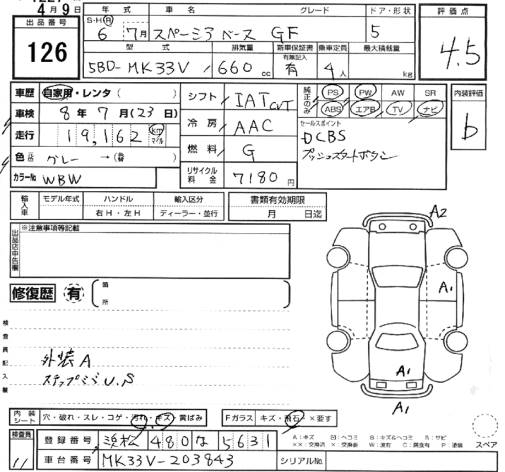 4月9日
出品番号 126
年式 車名 グレード ドア・形状 評価点
S・H・R 6 7月 スペーシア ベース GF 5
4.5
型式 排気量 新車保証書 有無記入 乗車定員 最大積載量
5BD- MK33V 660 cc 有 4人 kg
車歴 自家用・レンタ( )
車検 8年7月(23日)
走行 19,162 km マイル
色 グレー→(替 )
カラーNo WBW
シフト IAT CVT
冷房 AAC
燃料 G
リサイクル料金 7180円
純正のみ PS PW AW SR
ABS エアB TV ナビ
内装評価 b
セールスポイント
DCBS
プッシュスタートボタン
輸入車 モデル年式 ハンドル 輸入区分 書類有効期限
右H・左H ディーラー・並行 月 日迄
出品店申告欄 ※注意事項等記載
修復歴 有 箇所
検査員記入欄
外装A
A2
A1
A1
A1
内装シート 穴・破れ・スレ・コゲ・汚れ・キズ・黄ばみ Fガラス キズ・飛石・×要す
A:キズ U:ヘコミ B:キズ&ヘコミ S:サビ
××:交換済 ×:交換跡 W:波有 C:腐食有 P:塗装 スペア
検査員 11
登録番号 浜松 480 な 5631
車台番号 MK33V-203843 シリアルNo.